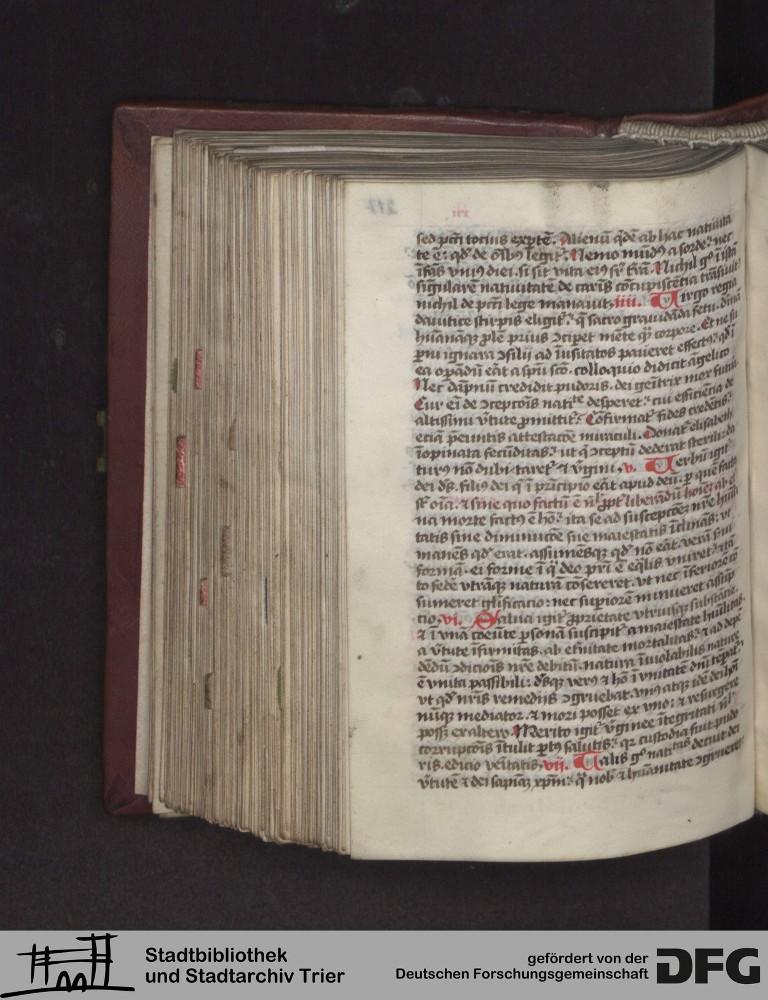 sed pctī totius expte. Alienū qde ab hac natiuita
te ē: qd de oībꝫ legit. Nemo mūdꝰ a sorde: nec
īfās vniꝰ diei. si sit vita eiꝰ sr̄ trā. Nichil gͦ ī istā
sīgularē natiuitatē de carīs cōcupiscētia trāsiuit
nichil de pctī lege manauit. iiii. Virgo regia
dauitice stirpis eligit. q̄ sacro grauidāda fetu. diuīā
hūanāqꝫ plē prius ↄciperet mēte qꝫ corpore. Et ne su
pni ignara ↄsilij ad īusitatos paueret effectꝰ: qd ī
ea opādū eāt a spū scō. colloquio didicit āgelico
Nec dāpnū credidit pudoris. dei genitrix mox futura
Cur eī de ↄcepcōis
altissimi v̄tute pmittit. Cōfirmat fides credētis:
eciā peuntis attestacōe miraculi. Donat elisabeth
īopinata fecūditas: ut q̄ ↄceptū dederat sterili: da
turꝰ nō dubitaret et v̄gini. v. Verbū igit
dei ds. filiꝰ dei q̄ ī prīcipio eāt apud deū. p quē facta
st̄ oīa. et sine quo factū ē nl̄. ppt liberādū hoīez ab et
na morte factꝰ ē hō: ita se ad suscepcōez nre hūili
tatis sine diminucōe sue maiestatis īclinās: ut
manēs qd erat. assumēsqꝫ qd nō eāt. verā serui
formā. ei forme ī q̄ deo pri ē eqlis vniret: et tā
to fedē vtrāqꝫ naturā cōsereret. vt nec īferiorē cō
sumeret glīficacio: nec supiorē minueret assūp
cio. vi. Salua igit pprietate vtriusqꝫ substācie.
et ī vnā coeūte psonā suscipit a maiestate hūilitas.
a v̄tute īfirmitas. ab et̄nitate mortalitas: et ad depē
dēdū ↄdicōis nre debitū. natura īuiolabilis nature
ē vnita passibili: dsqꝫ verꝰ et hō ī vnitatē dnī tepat.
vt qd nris remedijs ↄgruebat. vnꝰ atqꝫ idē dei hoī
nūqꝫ mediator. et mori posset ex vno: et resurgere
posset ex altero. Merito igit v̄ginee itegritati nl̄
corrupcōis ītulit ptꝰ salutis: qr custodia fuit pudo
ris. edicio veritatis. vij. Talis gͦ natiuitas decuit dei
v̄tutē et dei sapiaz xpm: q̄ nob et hūanitate ↄgrueret
Stadtbibliothek
und Stadtarchiv Trier
gefördert von der
Deutschen Forschungsgemeinschaft
DFG